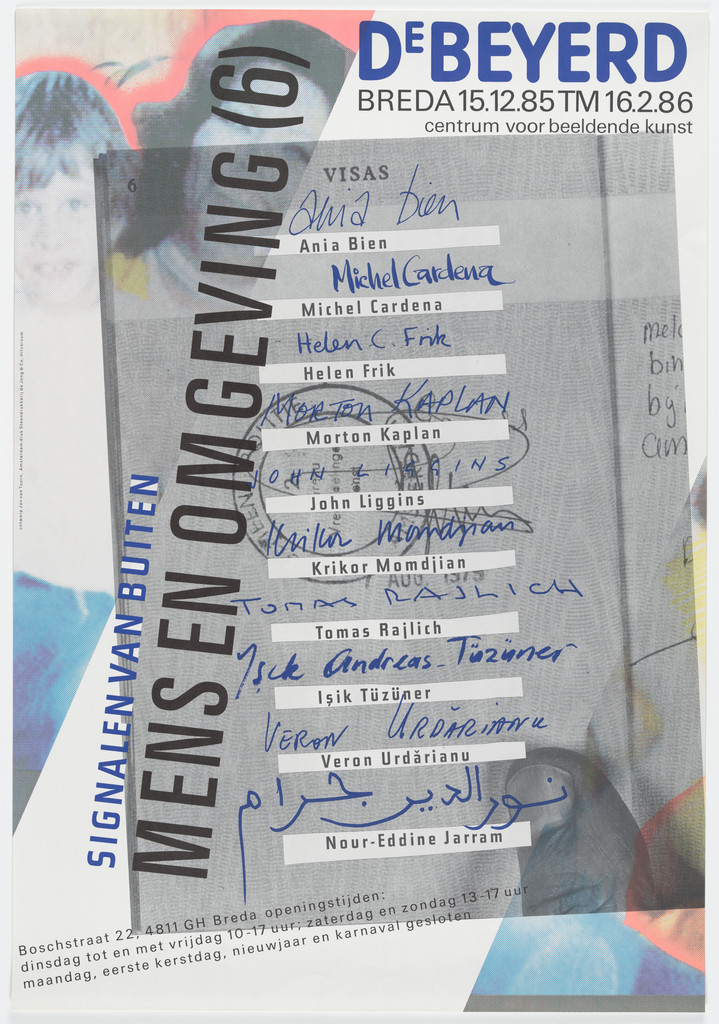 DE BEYERD
BREDA 15.12.85 TM 16.2.86
centrum voor beeldende kunst
MENS EN OMGEVING (6)
SIGNALEN VAN BUITEN
6
VISAS
Ania Bien
Ania Bien
Michel Cardena
Michel Cardena
Helen C. Frik
Helen Frik
MORTON KAPLAN
Morton Kaplan
JOHN LIGGINS
John Liggins
Krikor Momdjian
Krikor Momdjian
AUG. 1979
TOMAS RAJLICH
Tomas Rajlich
Işık Andreas-Tüzüner
Işik Tüzüner
VERON URDĂRIANU
Veron Urdărianu
نور الدين جرام
Nour-Eddine Jarram
bij
Boschstraat 22, 4811 GH Breda openingstijden:
dinsdag tot en met vrijdag 10-17 uur; zaterdag en zondag 13-17 uur
maandag, eerste kerstdag, nieuwjaar en karnaval gesloten